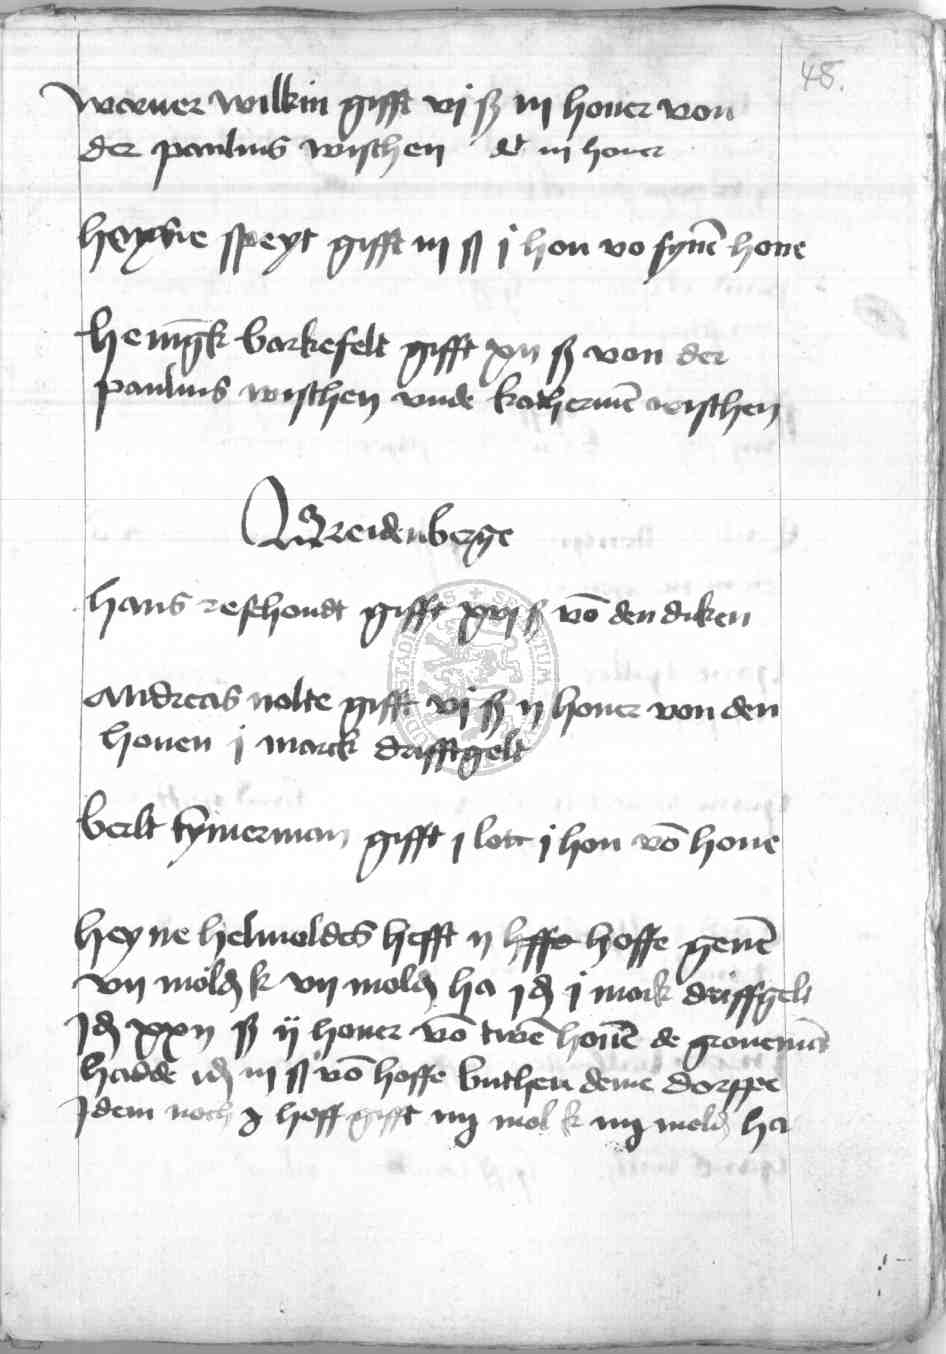 48.
Werner wilkin gifft vj ß iij honer von
der paulus wisschen dt iij honer
heyse speyt gifft iij ß j hon vo synē houe
henīgk barkefelt gifft xij ß von der
paulus wisschen vnde katherinē wisschen
Breidenberge
hans reschondt gifft xvj ß vō den diken
Andreas nolte gifft vj ß ij honer von den
houen j marck drifftgelt
berlt tȳmerman gifft j lott j hon vō houe
heyne helmoldes hefft ij hoffe geuē
vij molđ k vij molđ ha jđ j mark driffgelt
Jđ xxij ß ij honer vō twē houē de
hadde iđ iij ß vō hoffe buthen deme dorppe
Jdem noch j hoff gifft iiij mol k iiij molđ ha